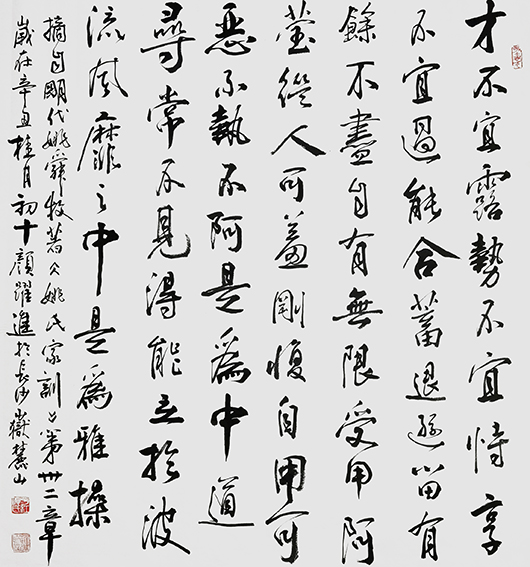 才不宜露勢不宜恃享
不宜過能合蓄退遜留有
餘不盡自有無限受用阿
從人可羞剛愎自用可
惡不執不阿是爲中道
尋常不見得能立於波
流風靡之中是爲雅操
摘自明代姚舜牧著《姚氏家訓》第卅二章
歲在辛丑桂月初十顏躍進於長沙嶽麓山